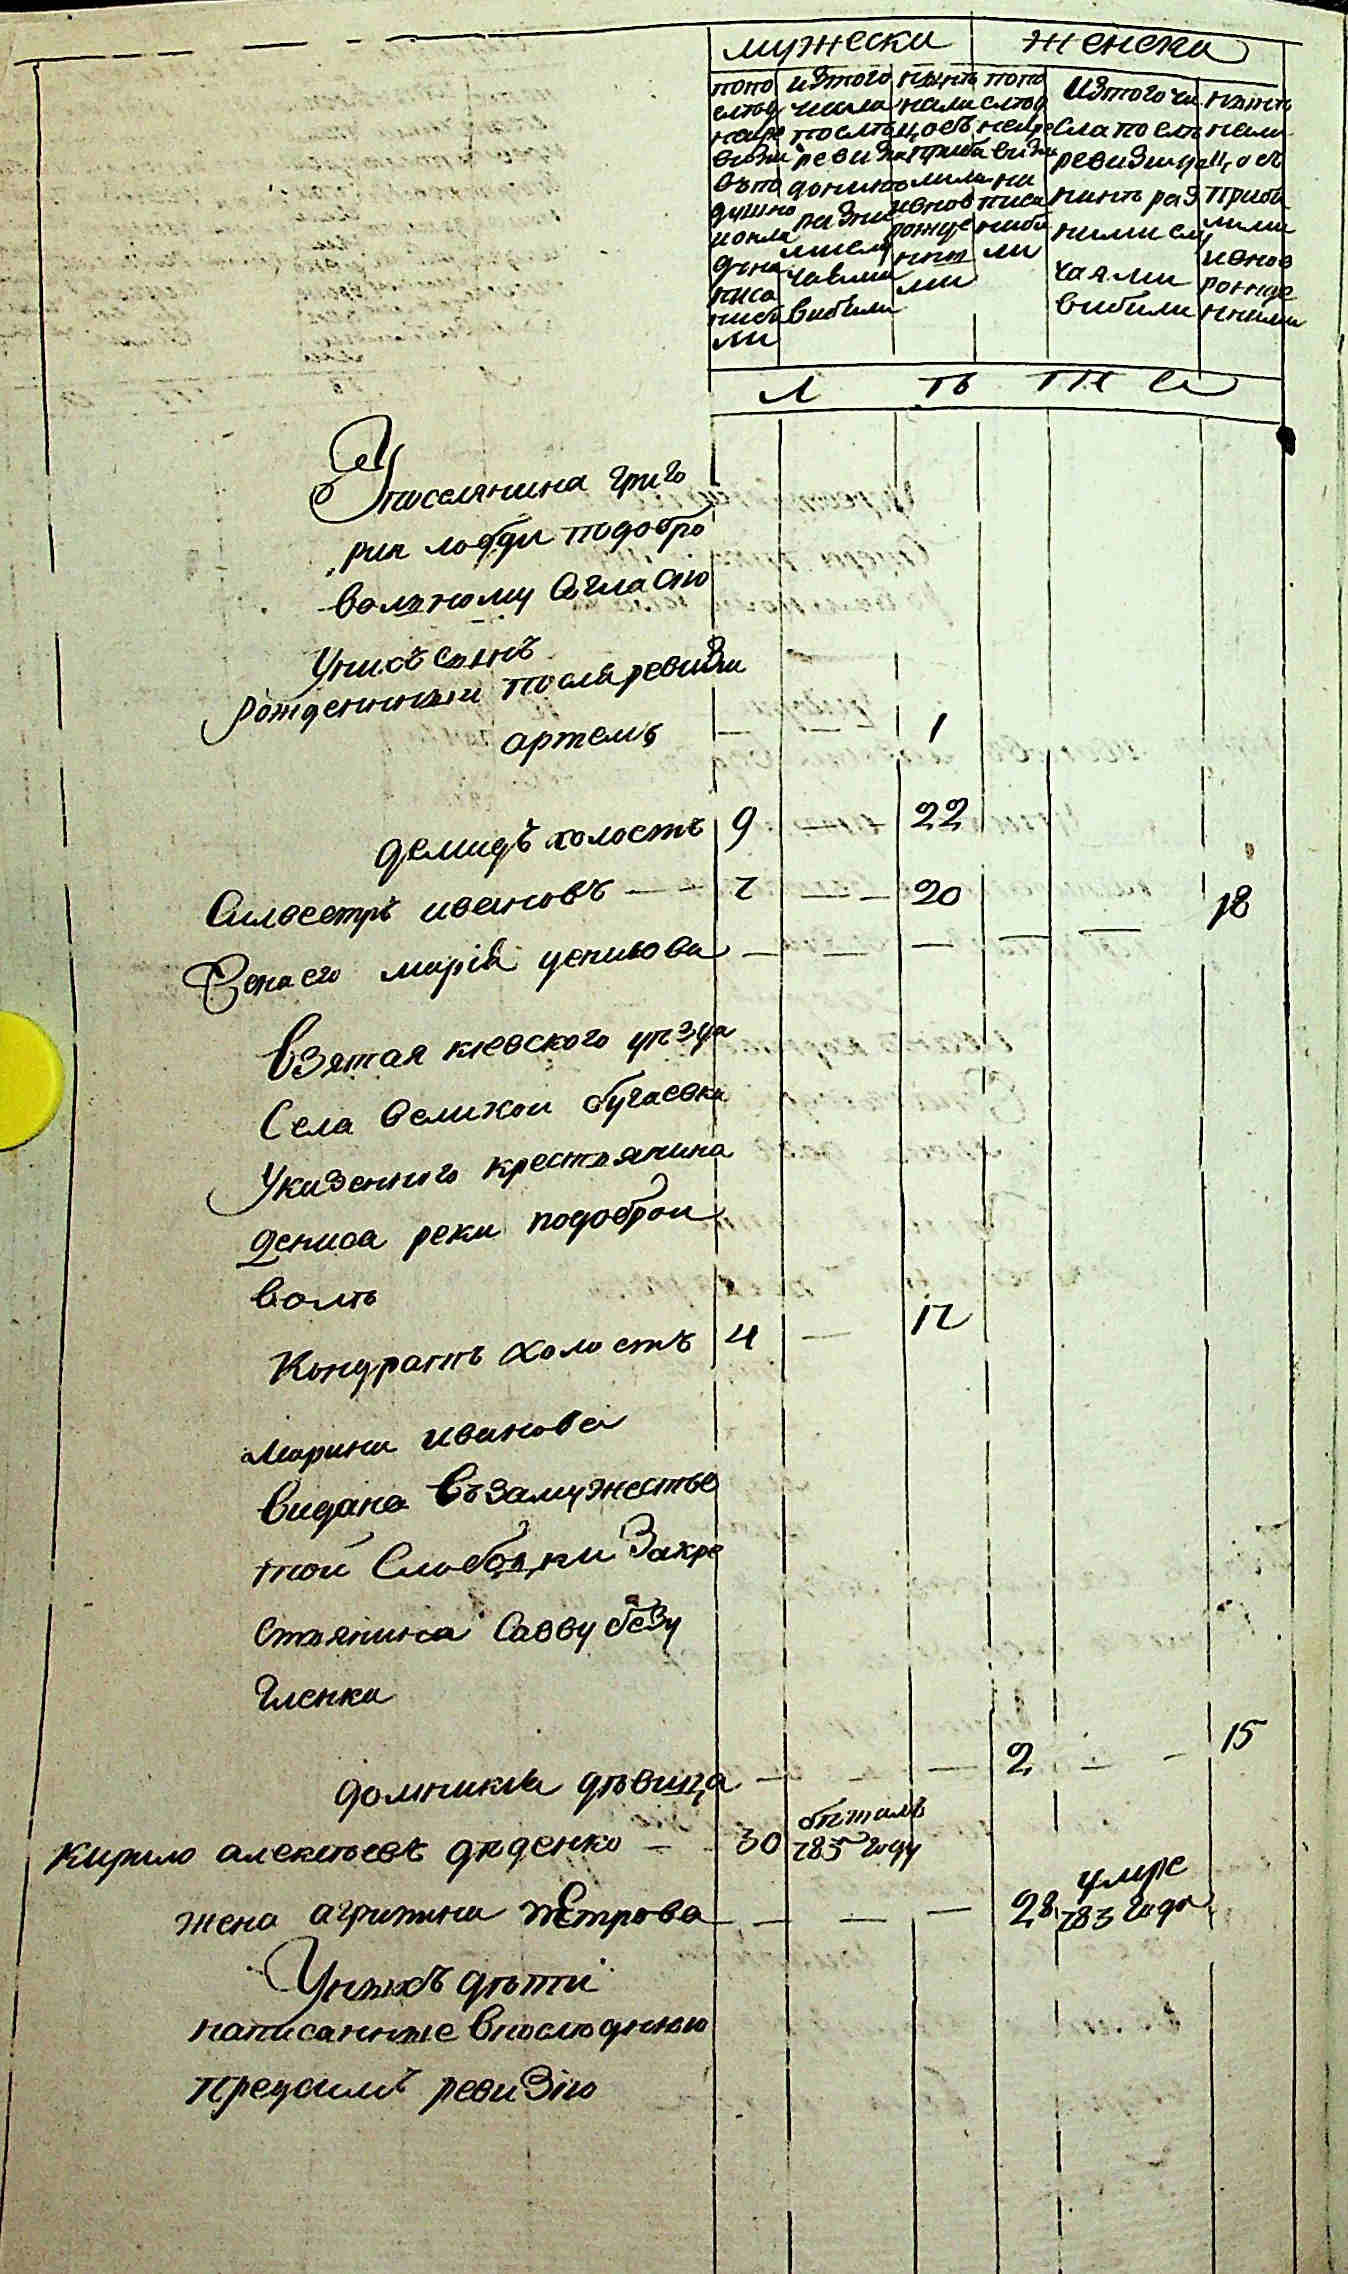 мужеска женска
попо
следн
ней ре
визи
въпо
душно
мокла
де на
писа
ниебы
ли
изтого
числа
послѣ
ревизи
донине
разни
ми слу
чаями
выбыли
нынѣ
нали
цоеъ
прибы
лими
ивнов
рожде
нны
ми
попо
следн
ней ре
визи
на
писа
ны бы
ли
изтого чи
сла послѣ
ревизи до
нинѣ раз
ними слу
чаями
выбыли
нынѣ
нали
цо съ
прибы
лими
ивнов
рожде
нними
Л ТЪ ТЖ Е
поселянина григо
рия лобды подобро
волному согласию
Унихъ сынъ
рожденный посля ревизии
артемъ — — 1
демидъ холостъ 9 — 22
Силвестръ ивановъ — 7 — 20
Жена его марія денисова — — — — — 18
Взятая киевского уѣзда
Села великои бугаевки
Указенного крестьянина
дениса реки подоброи
волѣ
Кондратъ холостъ 4 — 17
Марина иванова
видана взамужество
той Слободки За кре
стьянина Савву безу
гленка
домникиа дѣвица — — — 2 — 15
Кирило алексѣевъ дяденко — 30 бѣжалъ
783 году
жена агрипина петрова — — — 28 умре
783 года
Унихъ дѣти
написанные впослѣднюю
предсимъ ревизію